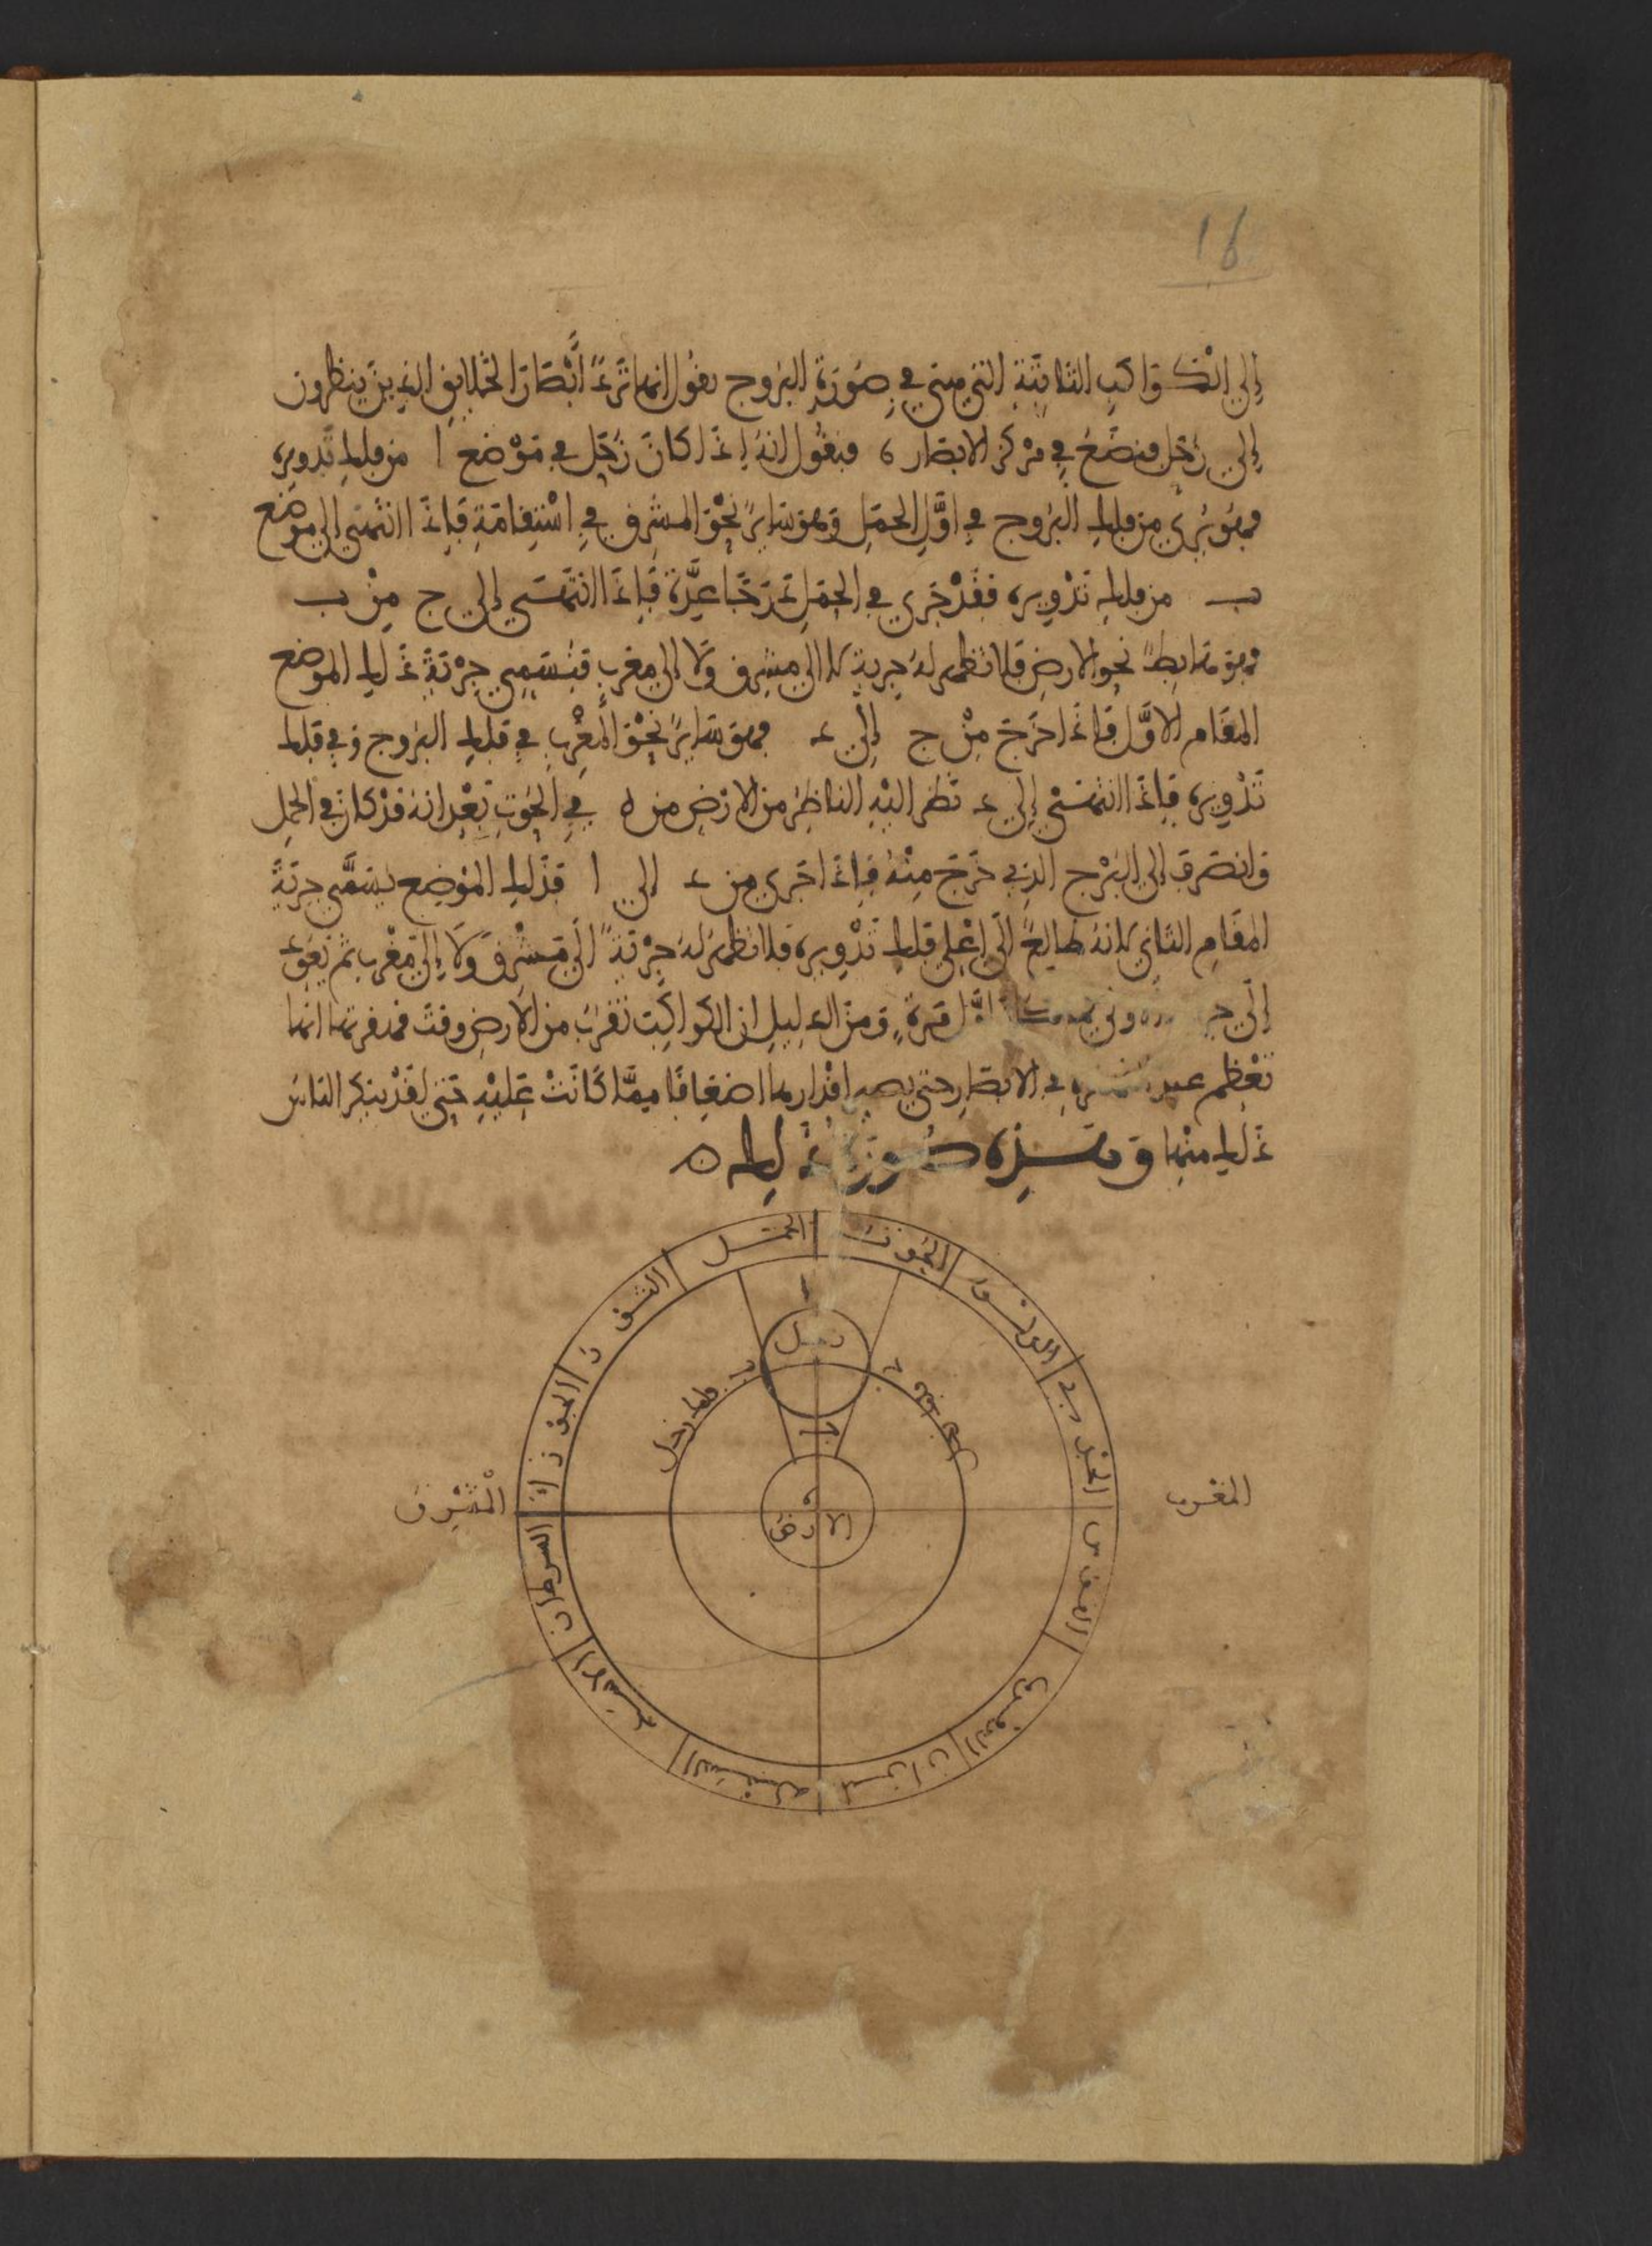 16
إلى الكواكب الثابتة التي هي في صورة البروج نقول انها ترد أبصار الخلايق الذين ينظرون
إلى زحل فنضع في مركز الابصار ه فنقول انه إذا كان زحل في موضع ا من فلك تدويره
فهو يرى من فلك البروج في أول الحمل وهو سايرٌ نحو المشرق في استقامة فإذا انتهى إلى موضع
ب من فلك تدويره فقد جرى في الحمل درجا عدة فإذا انتهى إلى ج من ب
فهو هابطٌ نحو الارض فلا تظهر له جرية لا إلى مشرق ولا إلى مغرب فيسمى جرية ذلك الموضع
المقام الاول فإذا خرج من ج إلى د فهو سايرٌ نحو المغرب في فلك البروج وفي فلك
تدويره فإذا انتهى إلى د نظر اليه الناظر من الارض من ه في الحوت بعد انه قد كان في الحمل
وانصرف إلى البرج الذي خرج منه فإذا جرى من د إلى ا فذلك الموضع يسمى جرية
المقام الثاني لانه طالع إلى اعلى فلك تدويره فلا تظهر له جرية إلى مشرق ولا إلى مغرب ثم يعود
إلى أول مرة ومن الدليل ان الكواكب تقرب من الارض وقت انها
تعظم عند في الابصار حتى يصير اقدارها اضعافا مما كانت عليه حتى لقد ينكر الناس
ذلك منها وهذه صورة ذلك ه
الحمل
الثور
الجوزا
السرطان
الاسد
السنبلة
الميزان
العقرب
القوس
الجدي
الدلو
الحوت
ا
زحل
ب
د
ج
فلك زحل
ه
الارض
المشرق
المغرب